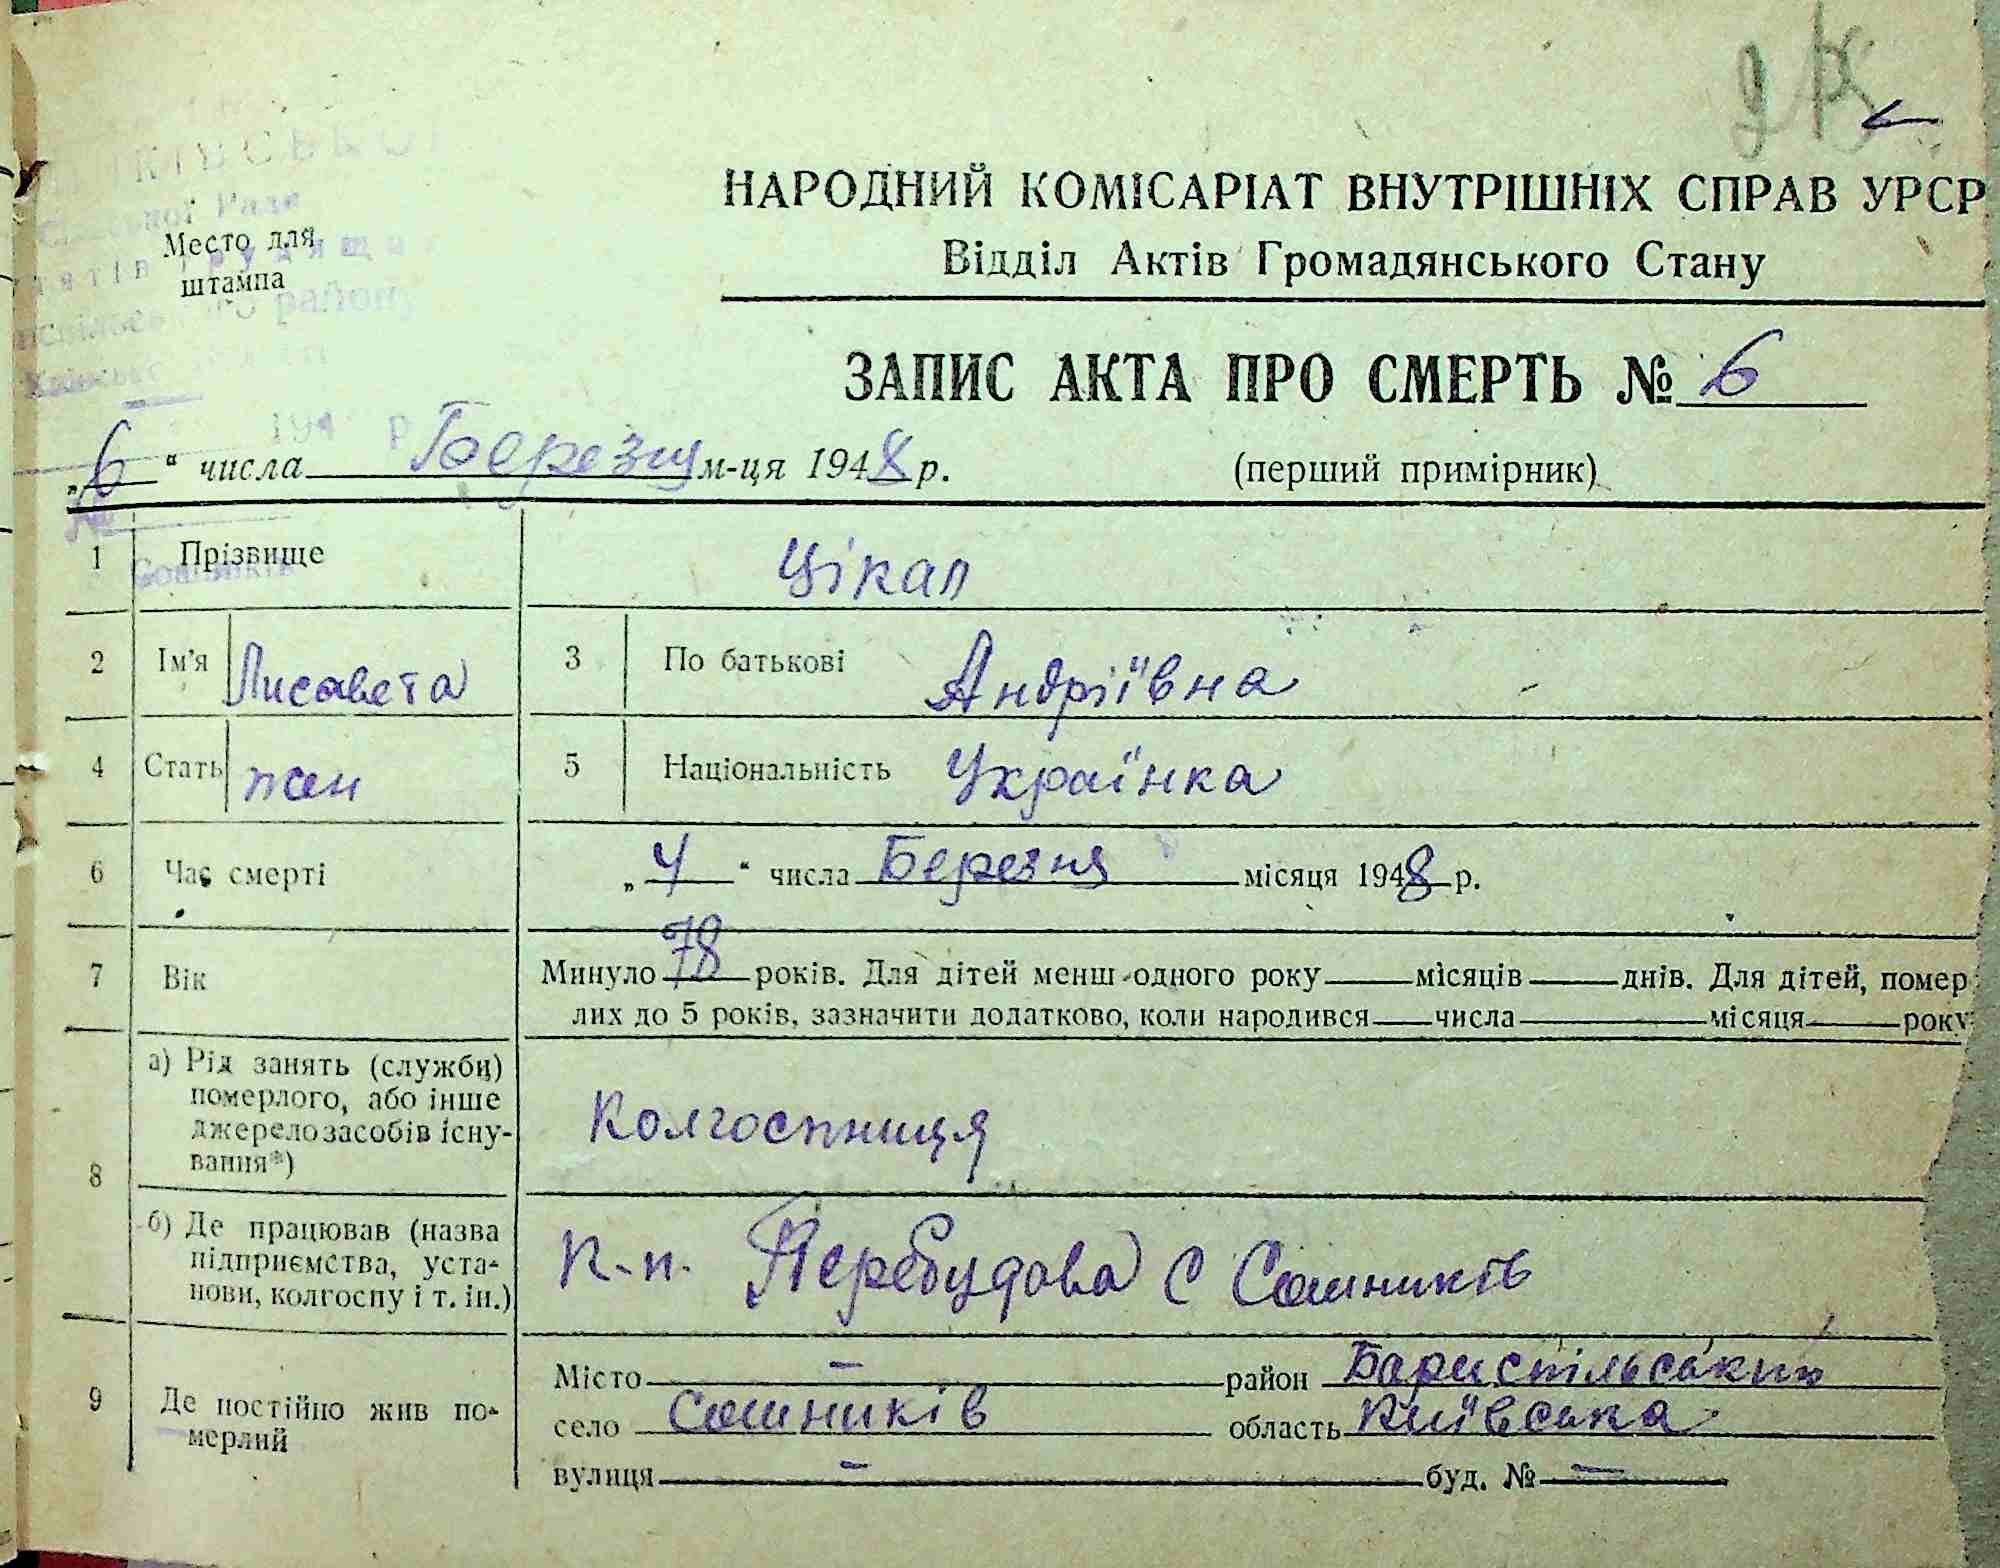 НАРОДНИЙ КОМІСАРІАТ ВНУТРІШНІХ СПРАВ УРСР
Відділ Актів Громадянського Стану
Место для
штампа
району
ЗАПИС АКТА ПРО СМЕРТЬ № 6
„6“ числа Березня м-ця 1948 р. (перший примірник)
1 Прізвище Цікал
2 Ім'я Лисавета 3 По батькові Андріївна
4 Стать жен 5 Національність Українка
6 Час смерті „4“ числа Березня місяця 1948 р.
7 Вік Минуло 78 років. Для дітей менш одного року місяців днів. Для дітей, помер
лих до 5 років, зазначити додатково, коли народився числа місяця року
8 а) Рід занять (служби)
померлого, або інше
джерело засобів існу-
вання*)
Колгоспниця
б) Де працював (назва
підприємства, уста-
нови, колгоспу і т. ін.)
К-п. Перебудова С Сошників
9 Де постійно жив по-
мерлий
Місто — район Бариспільський
село Сошників область Київська
вулиця — буд. № —